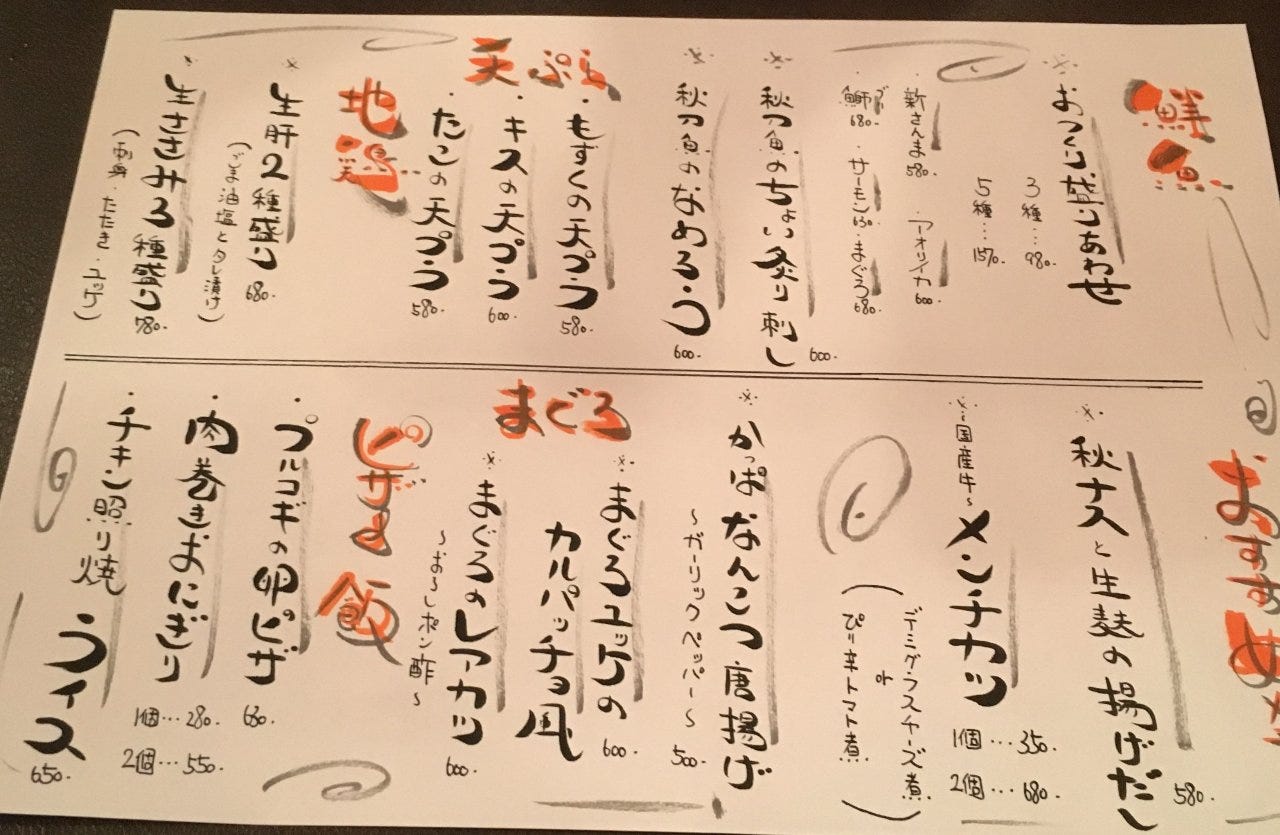 鮮魚
※おつくり盛りあわせ
3種…980.
5種…1570.
・新さんま580. ・アオリイカ600.
・鰤680. ・サーモン630. ・まぐろ680.
※秋刀魚のちょい炙り刺し 600.
※秋刀魚のなめろう 600.
天ぷら
・もずくの天プラ 580.
・キスの天プラ 600.
・たこの天プラ 580.
地鶏
※生肝2種盛り 680.
(ごま油塩とタレ漬け)
※生ささみ3種盛り 780.
(刺身・たたき・ユッケ)
旬
おすすめ
※秋ナスと生麩の揚げだし 580.
※~国産牛~メンチカツ
1個…350.
2個…680.
(デミグラスチーズ煮
or
ぴり辛トマト煮)
※かっぱなんこつ唐揚げ
~ガーリックペッパー~ 500.
まぐろ
※まぐろユッケの
カルパッチョ風 600.
※まぐろのレアカツ
~おろしポン酢~ 600.
ピザと飯
・プルコギの卵ピザ 680.
・肉巻きおにぎり
1個…280.
2個…550.
・チキン照り焼
ライス 650.